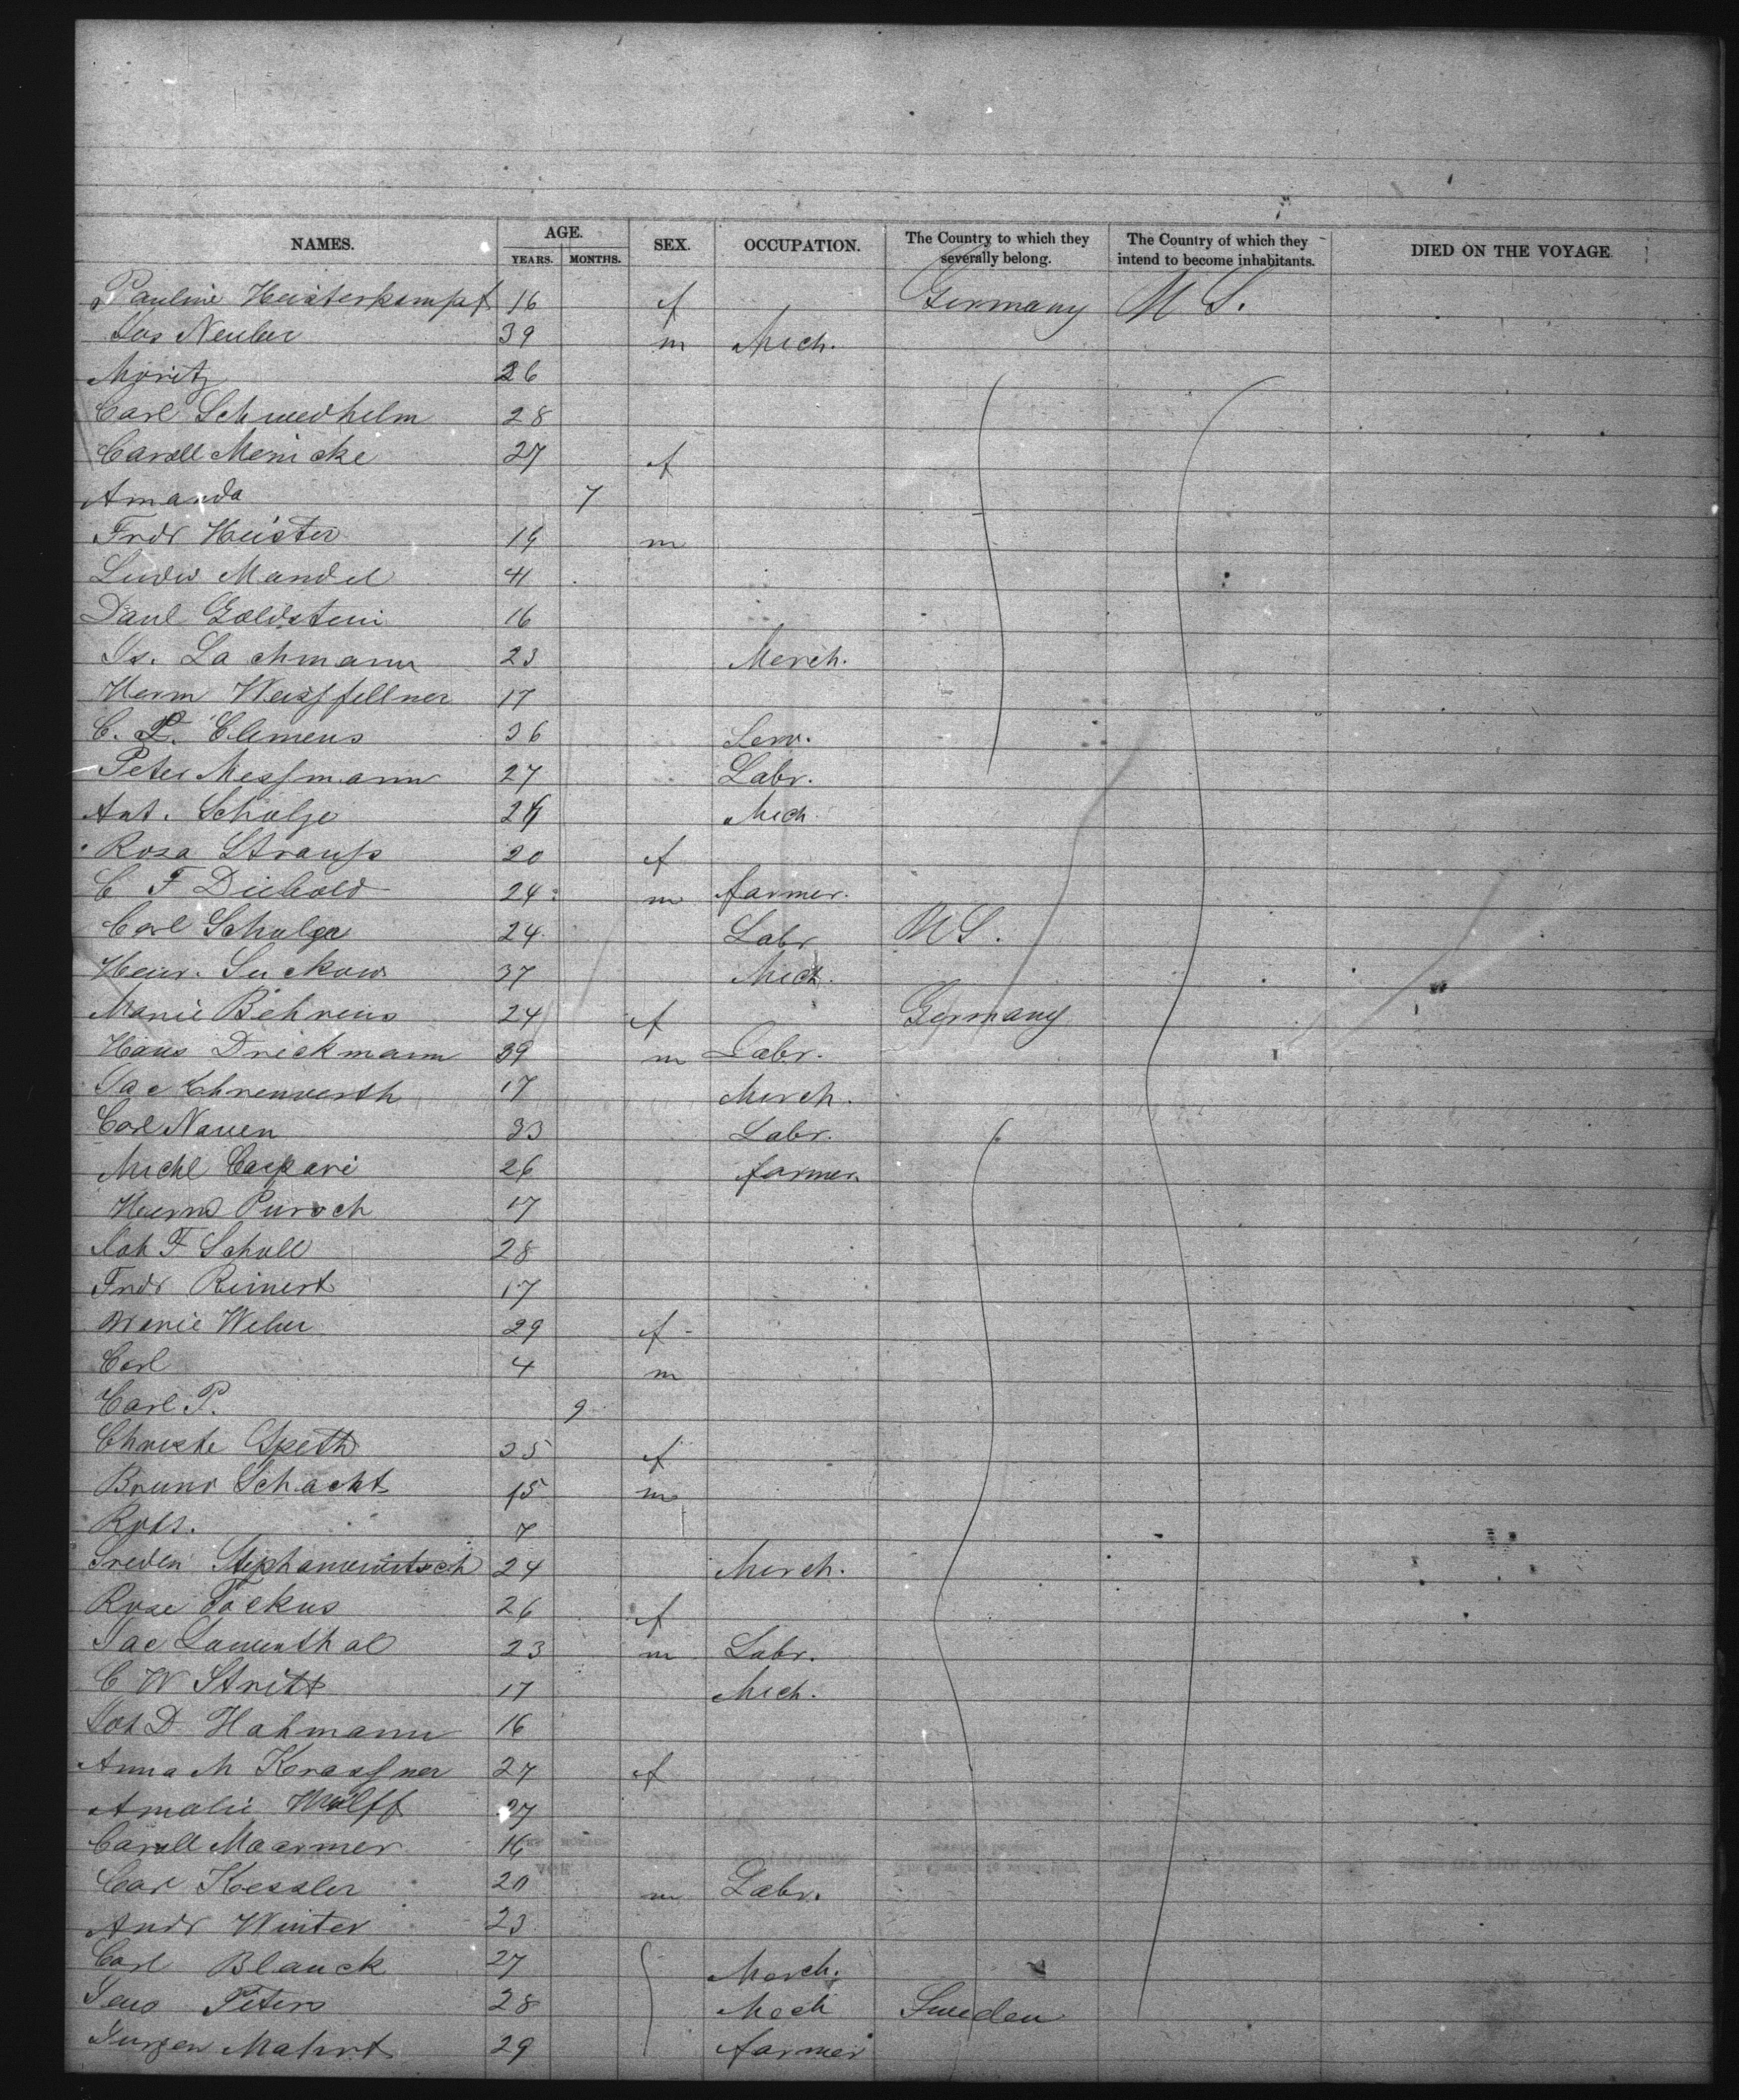 NAMES. AGE. SEX. OCCUPATION. The Country to which they severally belong. The Country of which they intend to become inhabitants. DIED ON THE VOYAGE
YEARS. MONTHS.
Pauline Heisterkampf 16 f Germany U S.
Jos Neuber 39 m Mech.
Moritz 26
Carl Schwedhelm 28
Caroll Menicke 27 f
Amanda 7
Fredr Heister 19 m
Ludw Mandel 41
Paul Goldstein 16
Is. Lachmann 23 Merch.
Herm Weissfellner 17
C. L. Clemens 36 Serv.
Peter Messmann 27 Labr.
Ant. Schulze 24 Mech
Rosa Strauss 20 f
C F Diebold 24 m farmer.
Carl Schulze 24 Labr U S.
Heinr. Suckow 37 Mech.
Marie Behrens 24 f Germany
Hans Drickmann 39 m Labr.
Jac Ehrenwerth 17 Merch.
Carl Nauen 33 Labr.
Michl Caspari 26 farmer
Herm Pursch 17
Joh F Schull 28
Fredr Reinert 17
Marie Weber 29 f
Carl 4 m
Carl P. 9
Christe Speth 25 f
Bruno Schacht 15 m
Robt. 7
Sreden Stephanowitsch 24 Merch.
Rose Tockus 26 f
Jac Lowenthal 23 m Labr.
C W Stritt 17 Mech.
Joh D Hahmann 16
Anna M Krassner 27 f
Amalie Wolff 27
Caroll Maarmer 16
Carl Kessler 20 m Labr.
Andr Winter 23
Carl Blanck 27 Merch.
Jens Peters 28 Mech Sweden
Jurgen Mahrt 29 farmer